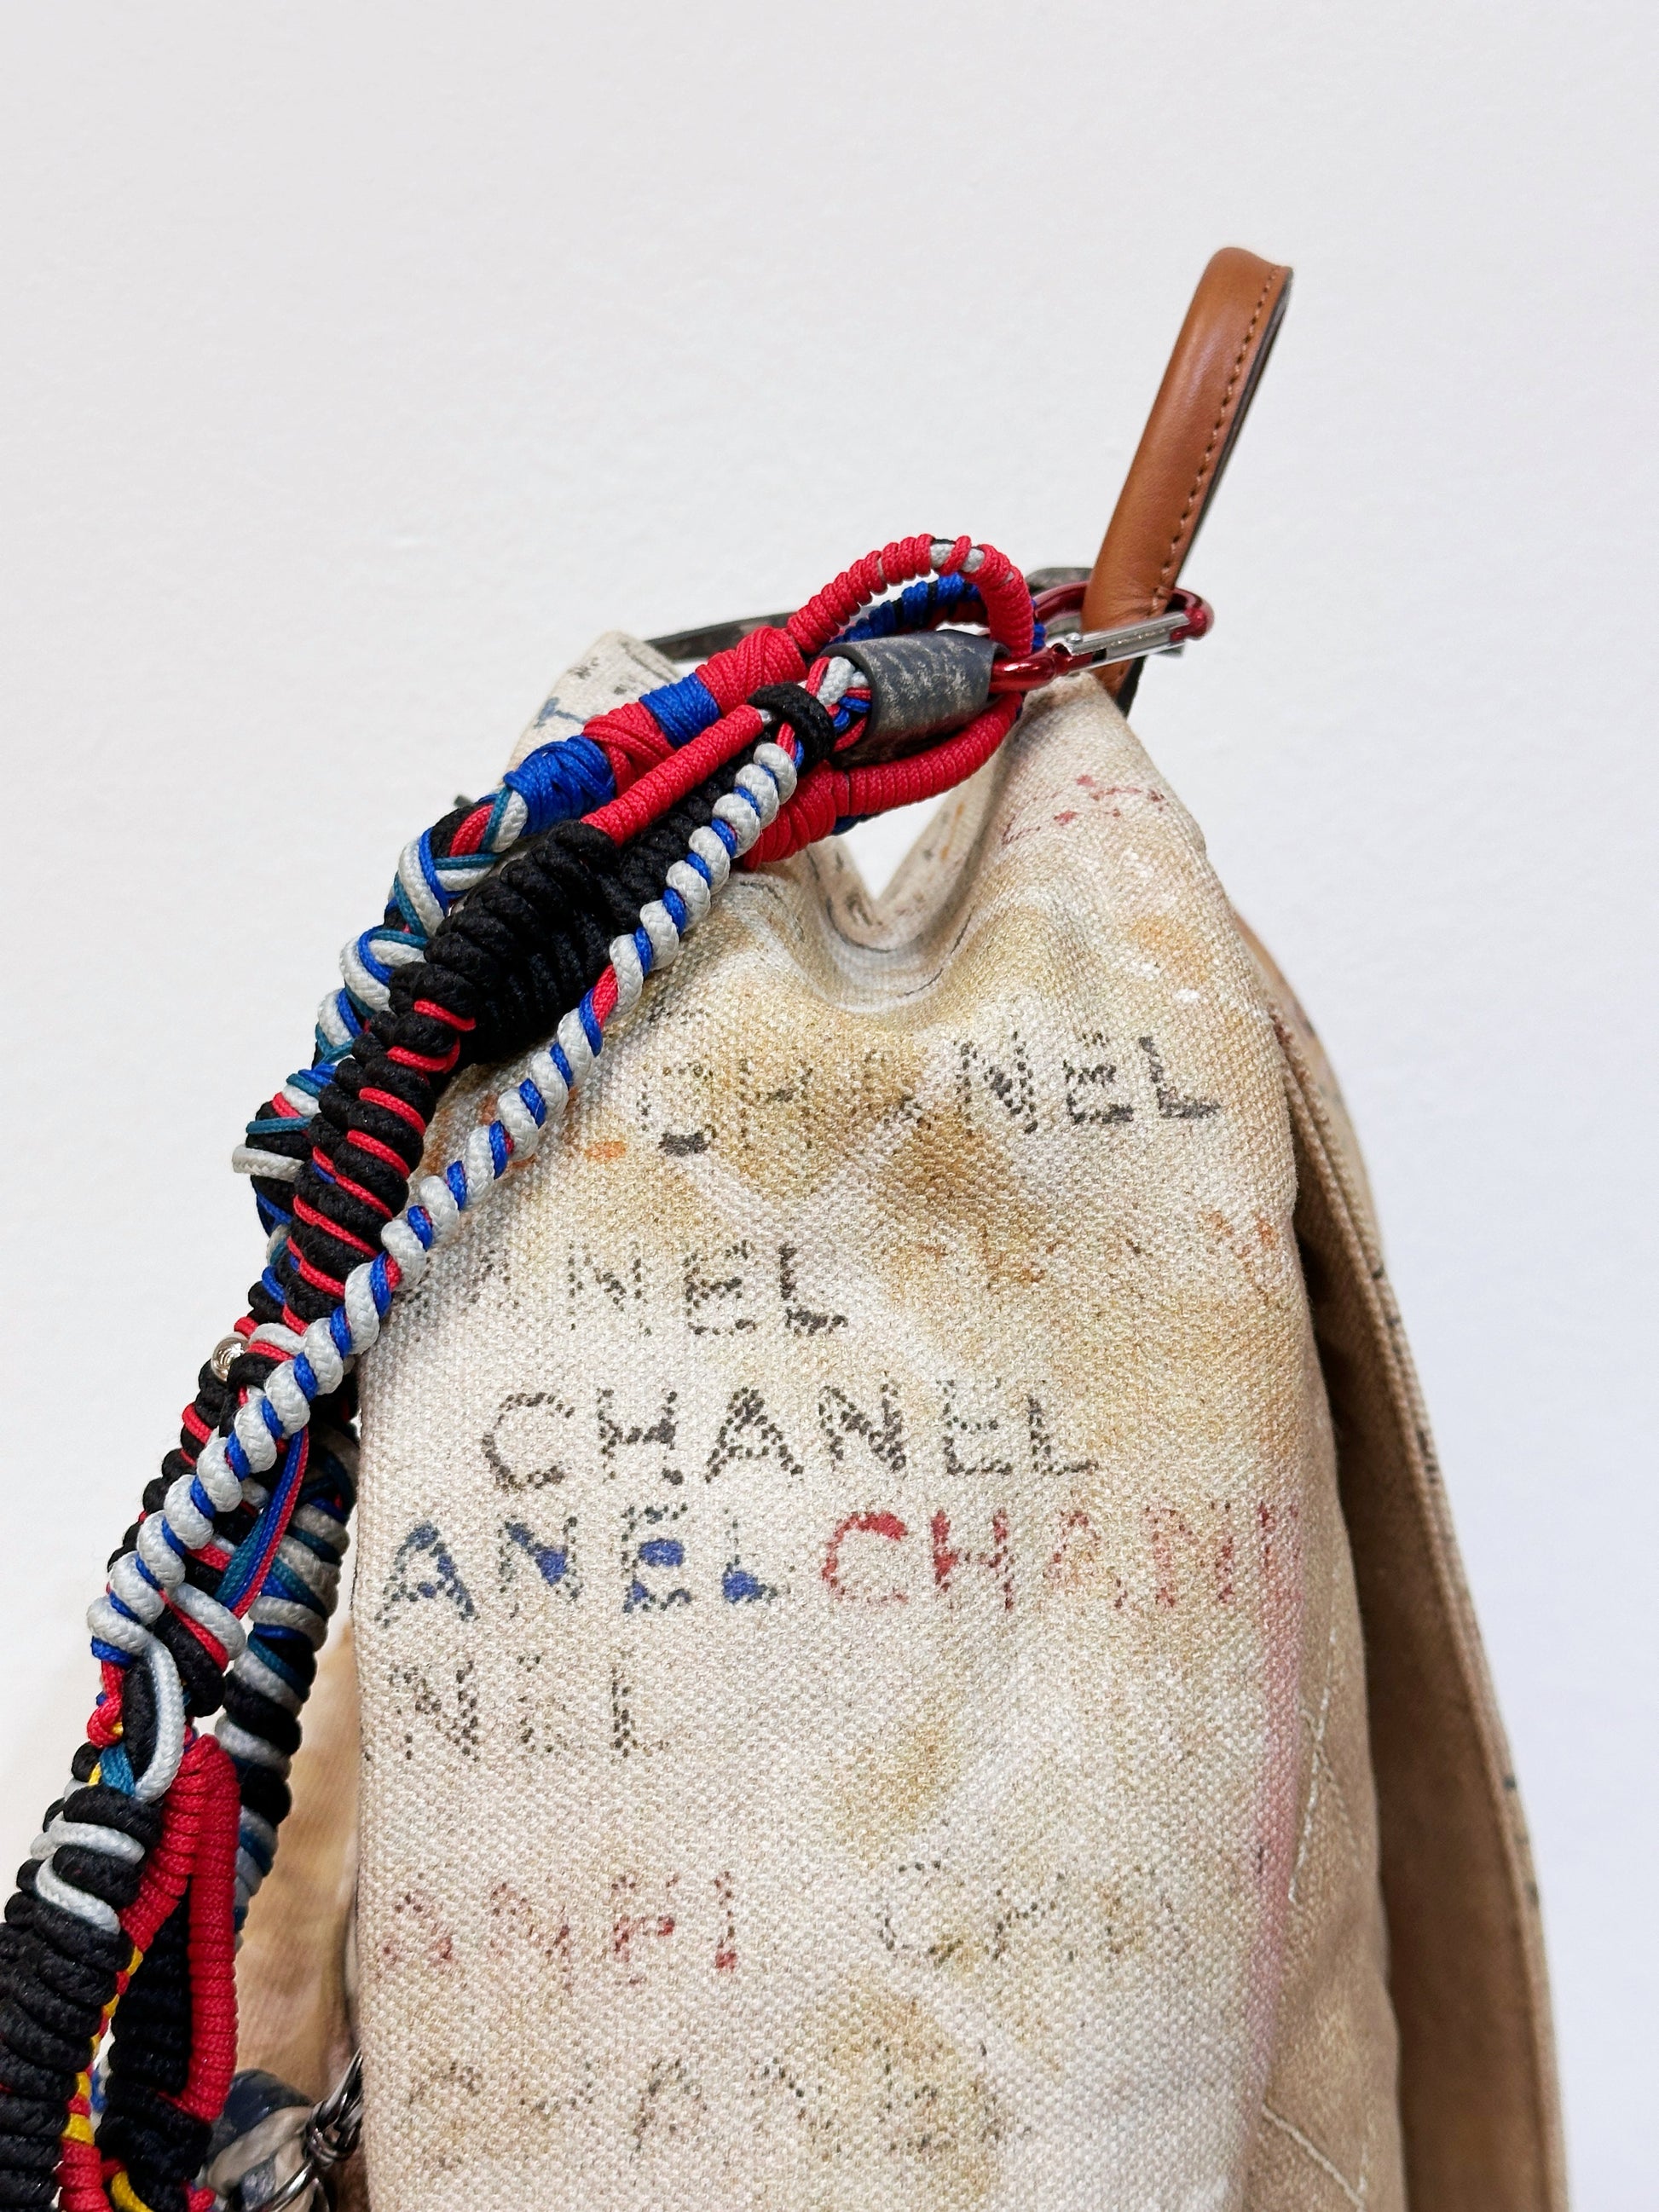 CHANEL
ANEL
CHANEL
ANEL CHANE
NEL
ANEL CHA